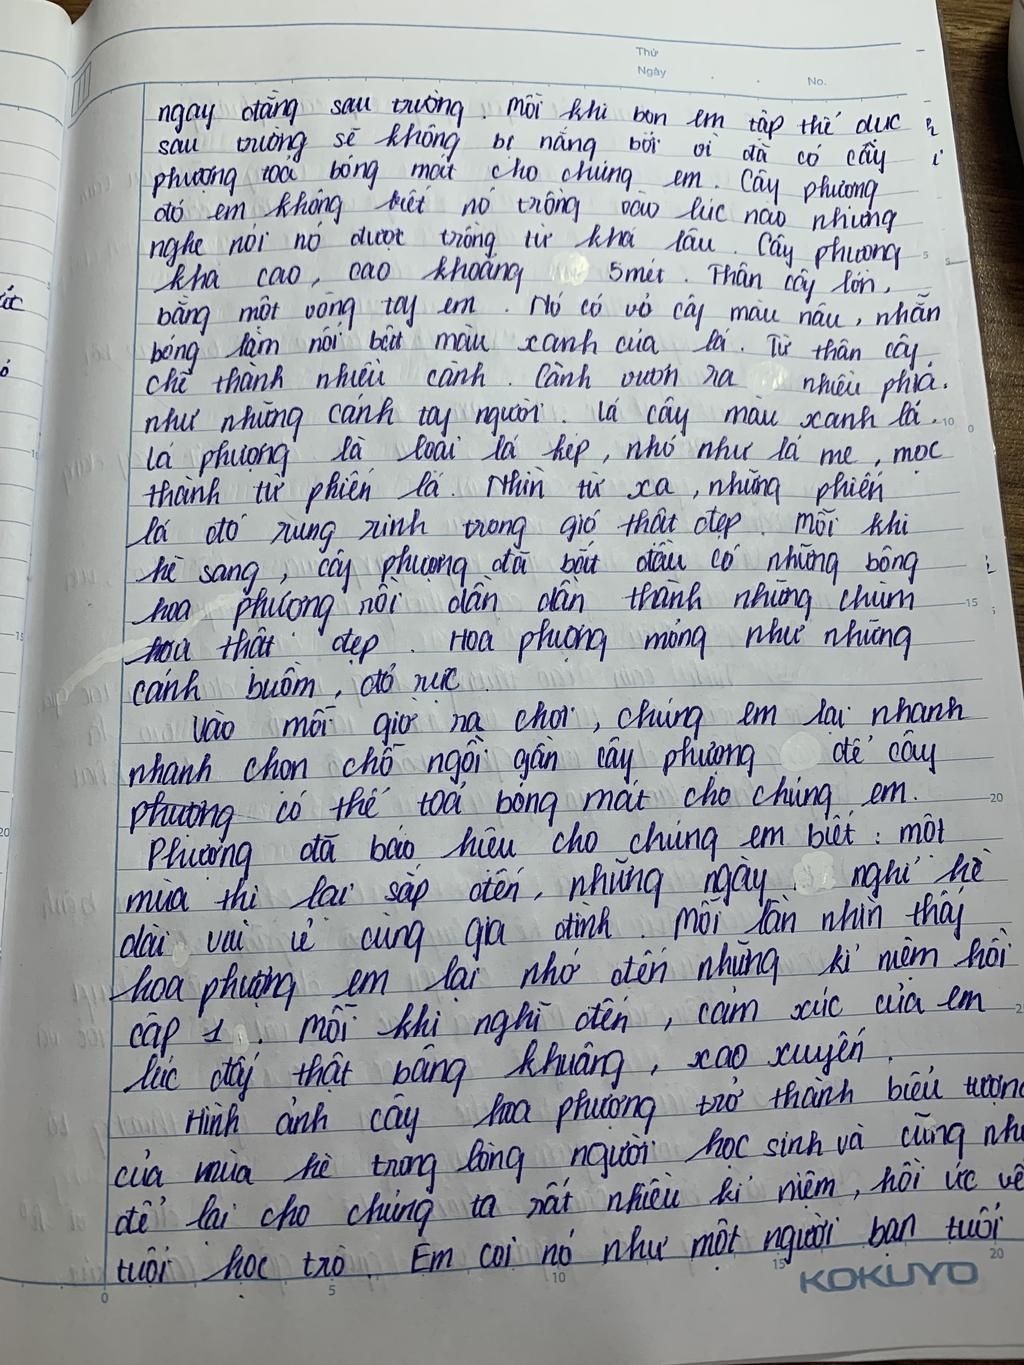 Thứ
Ngày . . No.
ngay đằng sau trường. Mỗi khi bọn em tập thể dục
sau trường sẽ không bị nắng bởi vì đã có cây
phượng toả bóng mát cho chúng em. Cây phượng
đó em không biết nó trồng vào lúc nào nhưng
nghe nói nó được trồng từ khá lâu. Cây phượng
khá cao, cao khoảng 5 mét. Thân cây lớn,
bằng một vòng tay em. Nó có vỏ cây màu nâu, nhẵn
bóng làm nổi bật màu xanh của lá. Từ thân cây,
chẽ thành nhiều cành. Cành vươn ra nhiều phía.
như những cánh tay người. Lá cây màu xanh lá.
Lá phượng là loài lá kép, nhỏ như lá me, mọc
thành từ phiến lá. Nhìn từ xa, những phiến
lá đó rung rinh trong gió thật đẹp. Mỗi khi
hè sang, cây phượng đã bắt đầu có những bông
hoa phượng rồi dần dần thành những chùm
hoa thật đẹp. Hoa phượng mỏng như những
cánh buồm, đỏ rực.
Vào mỗi giờ ra chơi, chúng em lại nhanh
nhanh chọn chỗ ngồi gần cây phượng để cây
phượng có thể toả bóng mát cho chúng em.
Phượng đã báo hiệu cho chúng em biết: một
mùa thi lại sắp đến, những ngày nghỉ hè
dài vui vẻ cùng gia đình. Mỗi lần nhìn thấy
hoa phượng em lại nhớ đến những kỉ niệm hồi
cấp 1. Mỗi khi nghĩ đến, cảm xúc của em
lúc đấy thật bâng khuâng, xao xuyến.
Hình ảnh cây hoa phượng trở thành biểu tượng
của mùa hè trong lòng người học sinh và cũng như
để lại cho chúng ta rất nhiều kỉ niệm, hồi ức về
tuổi học trò. Em coi nó như một người bạn tuổi
0 5 10 15 20
KOKUYO